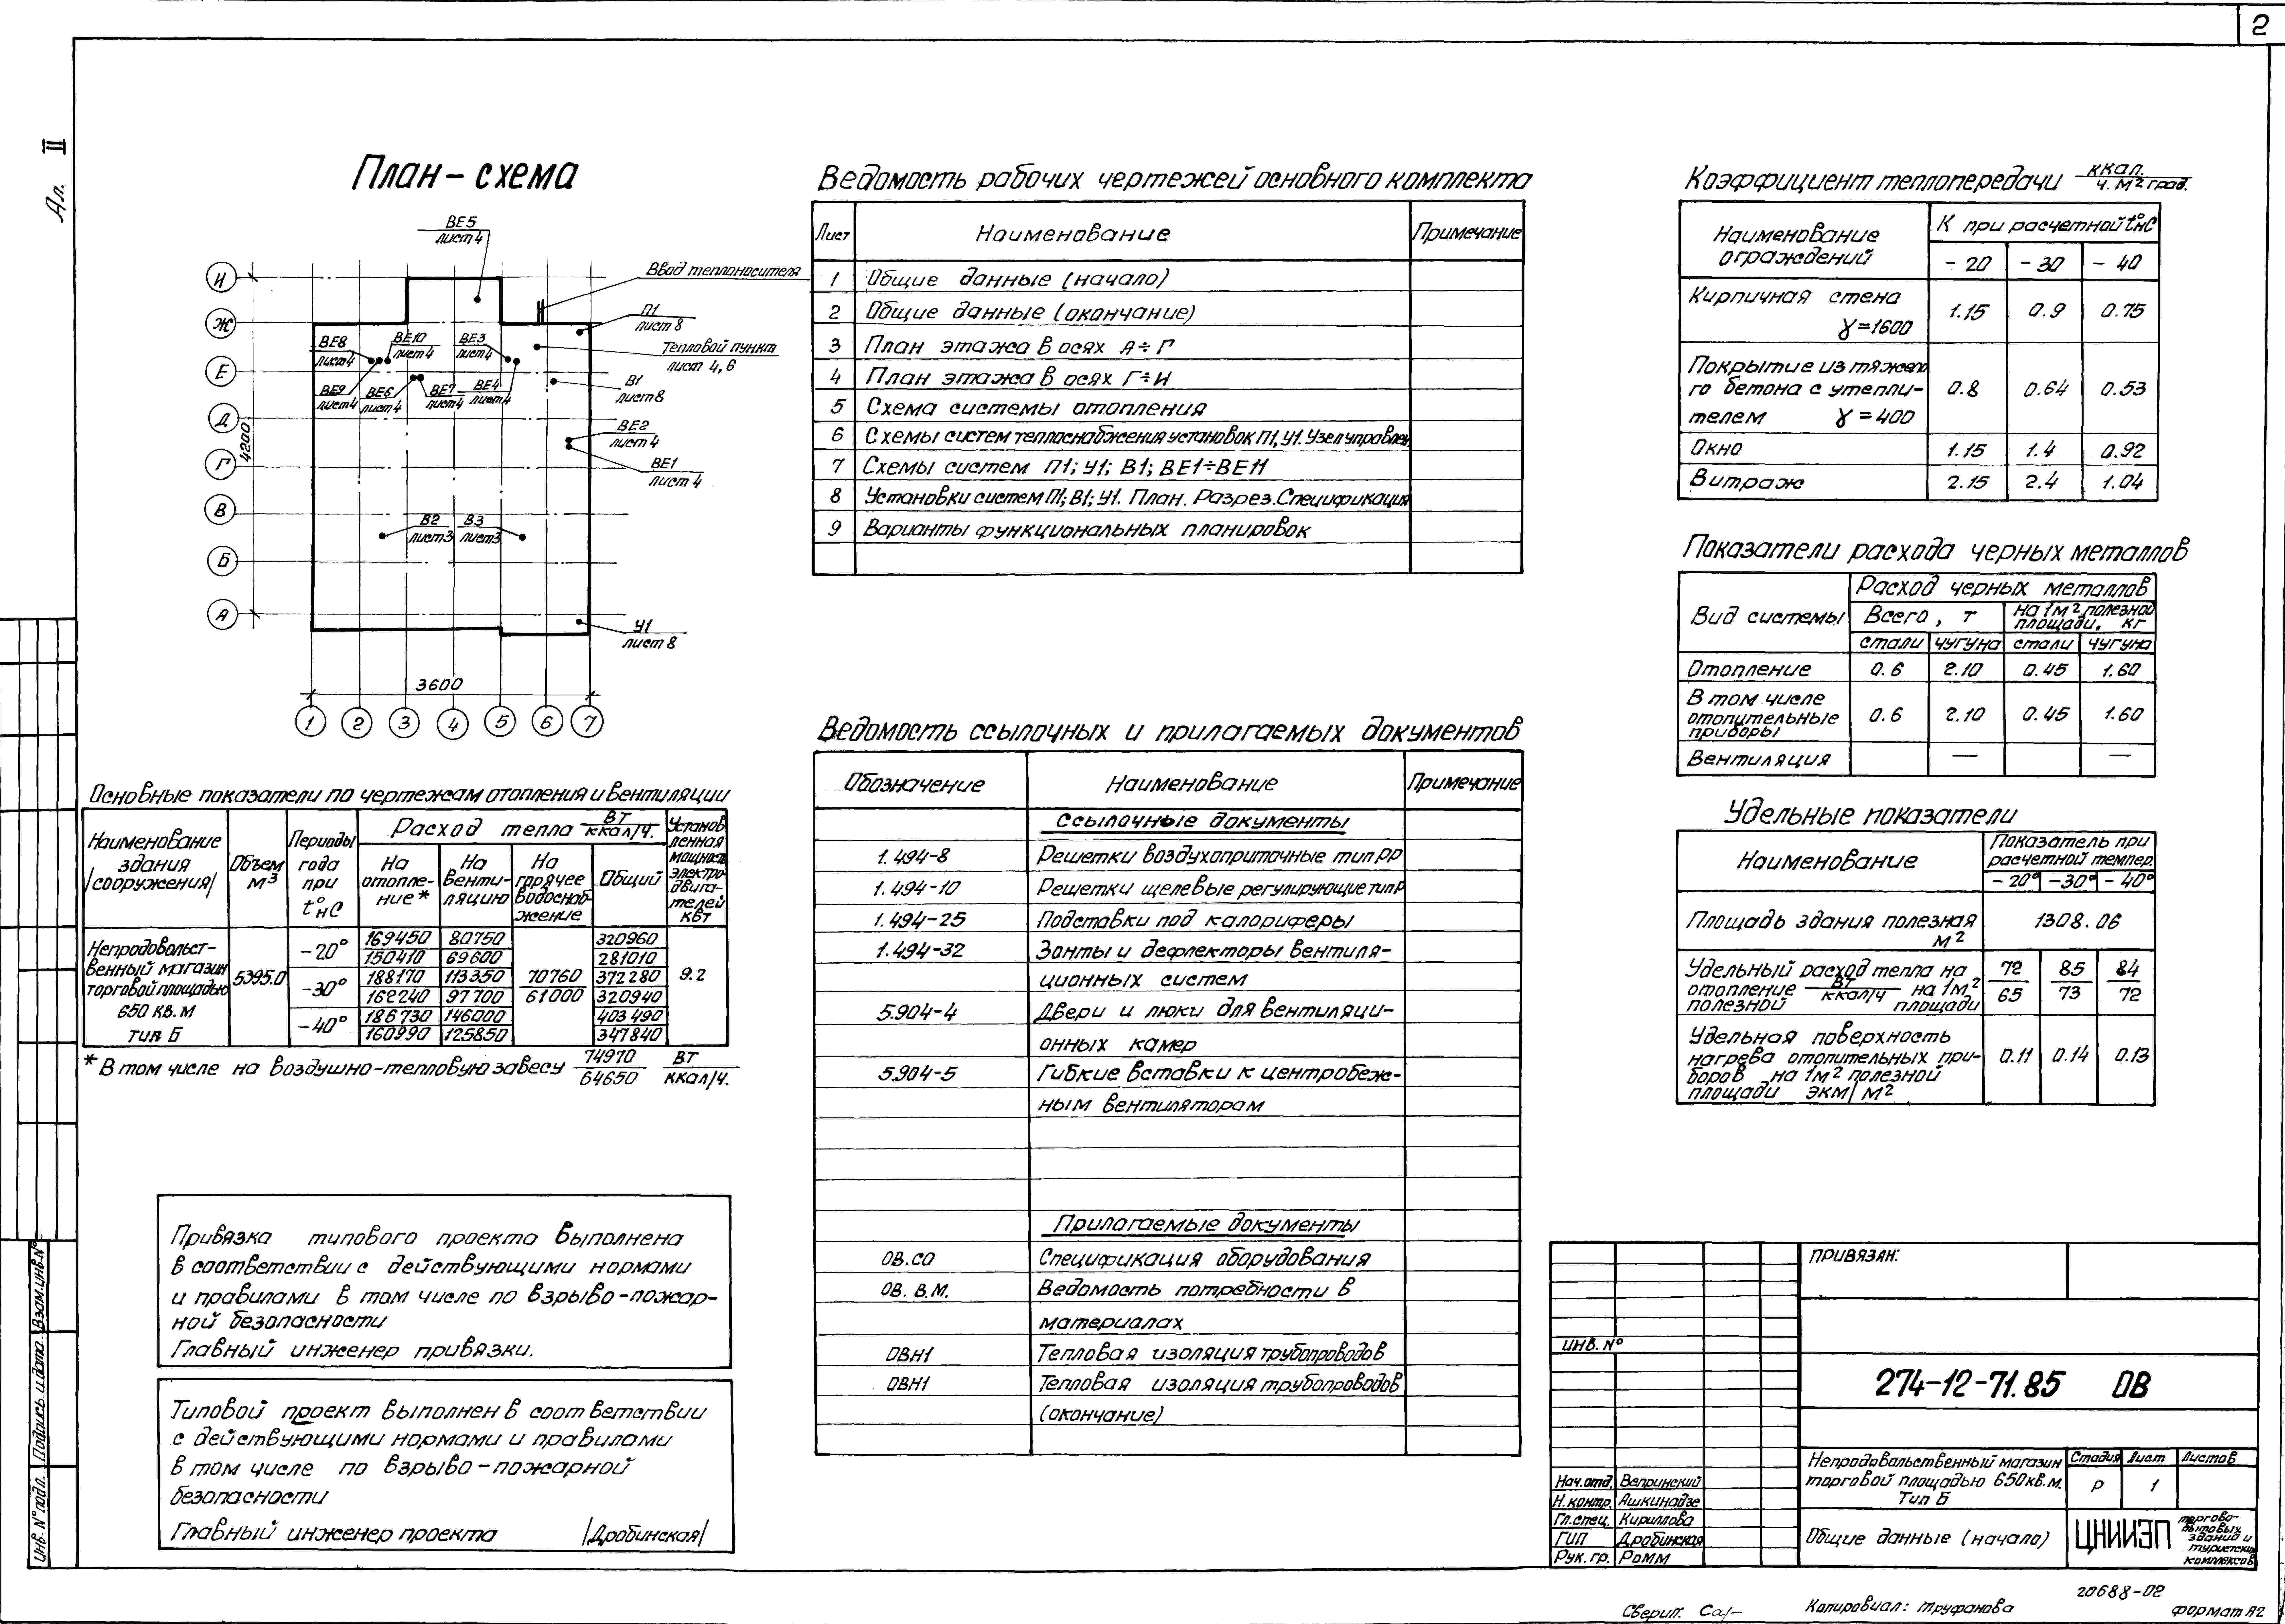 2
Ал. II
План-схема
ВЕ5
лист 4
Ввод теплоносителя
П1
лист 8
Тепловой пункт
лист 4, 6
ВЕ8
лист 4
ВЕ10
лист 4
ВЕ3
лист 4
ВЕ9
лист 4
ВЕ6
лист 4
ВЕ7
лист 4
ВЕ4
лист 4
В1
лист 8
ВЕ2
лист 4
ВЕ1
лист 4
В2
лист 3
В3
лист 3
У1
лист 8
И
Ж
Е
Д
Г
В
Б
А
4200
3600
1 2 3 4 5 6 7
Основные показатели по чертежам отопления и вентиляции
Наименование здания /сооружения/
Объем м³
Периоды года при t°нС
Расход тепла Вт/ккал/ч.
На отопле-ние*
На венти-ляцию
На горячее водоснаб-жение
Общий
Установ ленная мощность электро-двига-телей кВт
Непродовольст-
венный магазин
торговой площадью
650 кв.м
тип Б
5395.0
-20° 169450 80750 320960
150410 69600 281010
-30° 188170 113350 70760 372280 9.2
162240 97700 61000 320940
-40° 186730 146000 403490
160990 125850 347840
* В том числе на воздушно-тепловую завесу 74970/64650 Вт/ккал/ч.
Привязка типового проекта выполнена
в соответствии с действующими нормами
и правилами в том числе по взрыво-пожар-
ной безопасности
Главный инженер привязки.
Типовой проект выполнен в соответствии
с действующими нормами и правилами
в том числе по взрыво-пожарной
безопасности
Главный инженер проекта /Дробинская/
Ведомость рабочих чертежей основного комплекта
Лист Наименование Примечание
1 Общие данные (начало)
2 Общие данные (окончание)
3 План этажа в осях А÷Г
4 План этажа в осях Г÷И
5 Схема системы отопления
6 Схемы систем теплоснабжения установок П1, У1. Узел управлен.
7 Схемы систем П1; У1; В1; ВЕ1÷ВЕ11
8 Установки систем П1; В1; У1. План. Разрез. Спецификация
9 Варианты функциональных планировок
Ведомость ссылочных и прилагаемых документов
Обозначение Наименование Примечание
Ссылочные документы
1.494-8 Решетки воздухоприточные тип РР
1.494-10 Решетки щелевые регулирующие тип Р
1.494-25 Подставки под калориферы
1.494-32 Зонты и дефлекторы вентиля-
ционных систем
5.904-4 Двери и люки для вентиляци-
онных камер
5.904-5 Гибкие вставки к центробеж-
ным вентиляторам
Прилагаемые документы
ОВ.СО Спецификация оборудования
ОВ. В.М. Ведомость потребности в
материалах
ОВН1 Тепловая изоляция трубопроводов
ОВН1 Тепловая изоляция трубопроводов
(окончание)
Коэффициент теплопередачи ккал./ч. м² град.
Наименование ограждений
К при расчетной t°нС
-20 -30 -40
Кирпичная стена
γ=1600 1.15 0.9 0.75
Покрытие из тяжело
го бетона с утепли- 0.8 0.64 0.53
телем γ=400
Окно 1.15 1.4 0.92
Витраж 2.15 2.4 1.04
Показатели расхода черных металлов
Вид системы
Расход черных металлов
Всего, т
на 1м² полезной площади, кг
стали чугуна стали чугуна
Отопление 0.6 2.10 0.45 1.60
В том числе
отопительные 0.6 2.10 0.45 1.60
приборы
Вентиляция — —
Удельные показатели
Наименование
Показатель при
расчетной темпер.
-20° -30° -40°
Площадь здания полезная м² 1308.06
Удельный расход тепла на
отопление Вт/ккал/ч на 1м²
полезной площади
72/65 85/73 84/72
Удельная поверхность
нагрева отопительных при- 0.11 0.14 0.13
боров на 1м² полезной
площади экм/м²
Привязан:
Инв. №
274-12-71.85 ОВ
Непродовольственный магазин
торговой площадью 650кв.м.
Тип Б
Стадия Лист Листов
Р 1
Общие данные (начало)
ЦНИИЭП
торгово-
бытовых
зданий и
туристских
комплексов
Нач.отд. Вепринский
Н.контр. Ашкинадзе
Гл.спец. Кириллова
ГИП Дробинская
Рук.гр. Ромм
Инв. № подл. Подпись и дата Взам.инв.№
20688-02
Сверил:
Копировал: Труфанова
формат А2